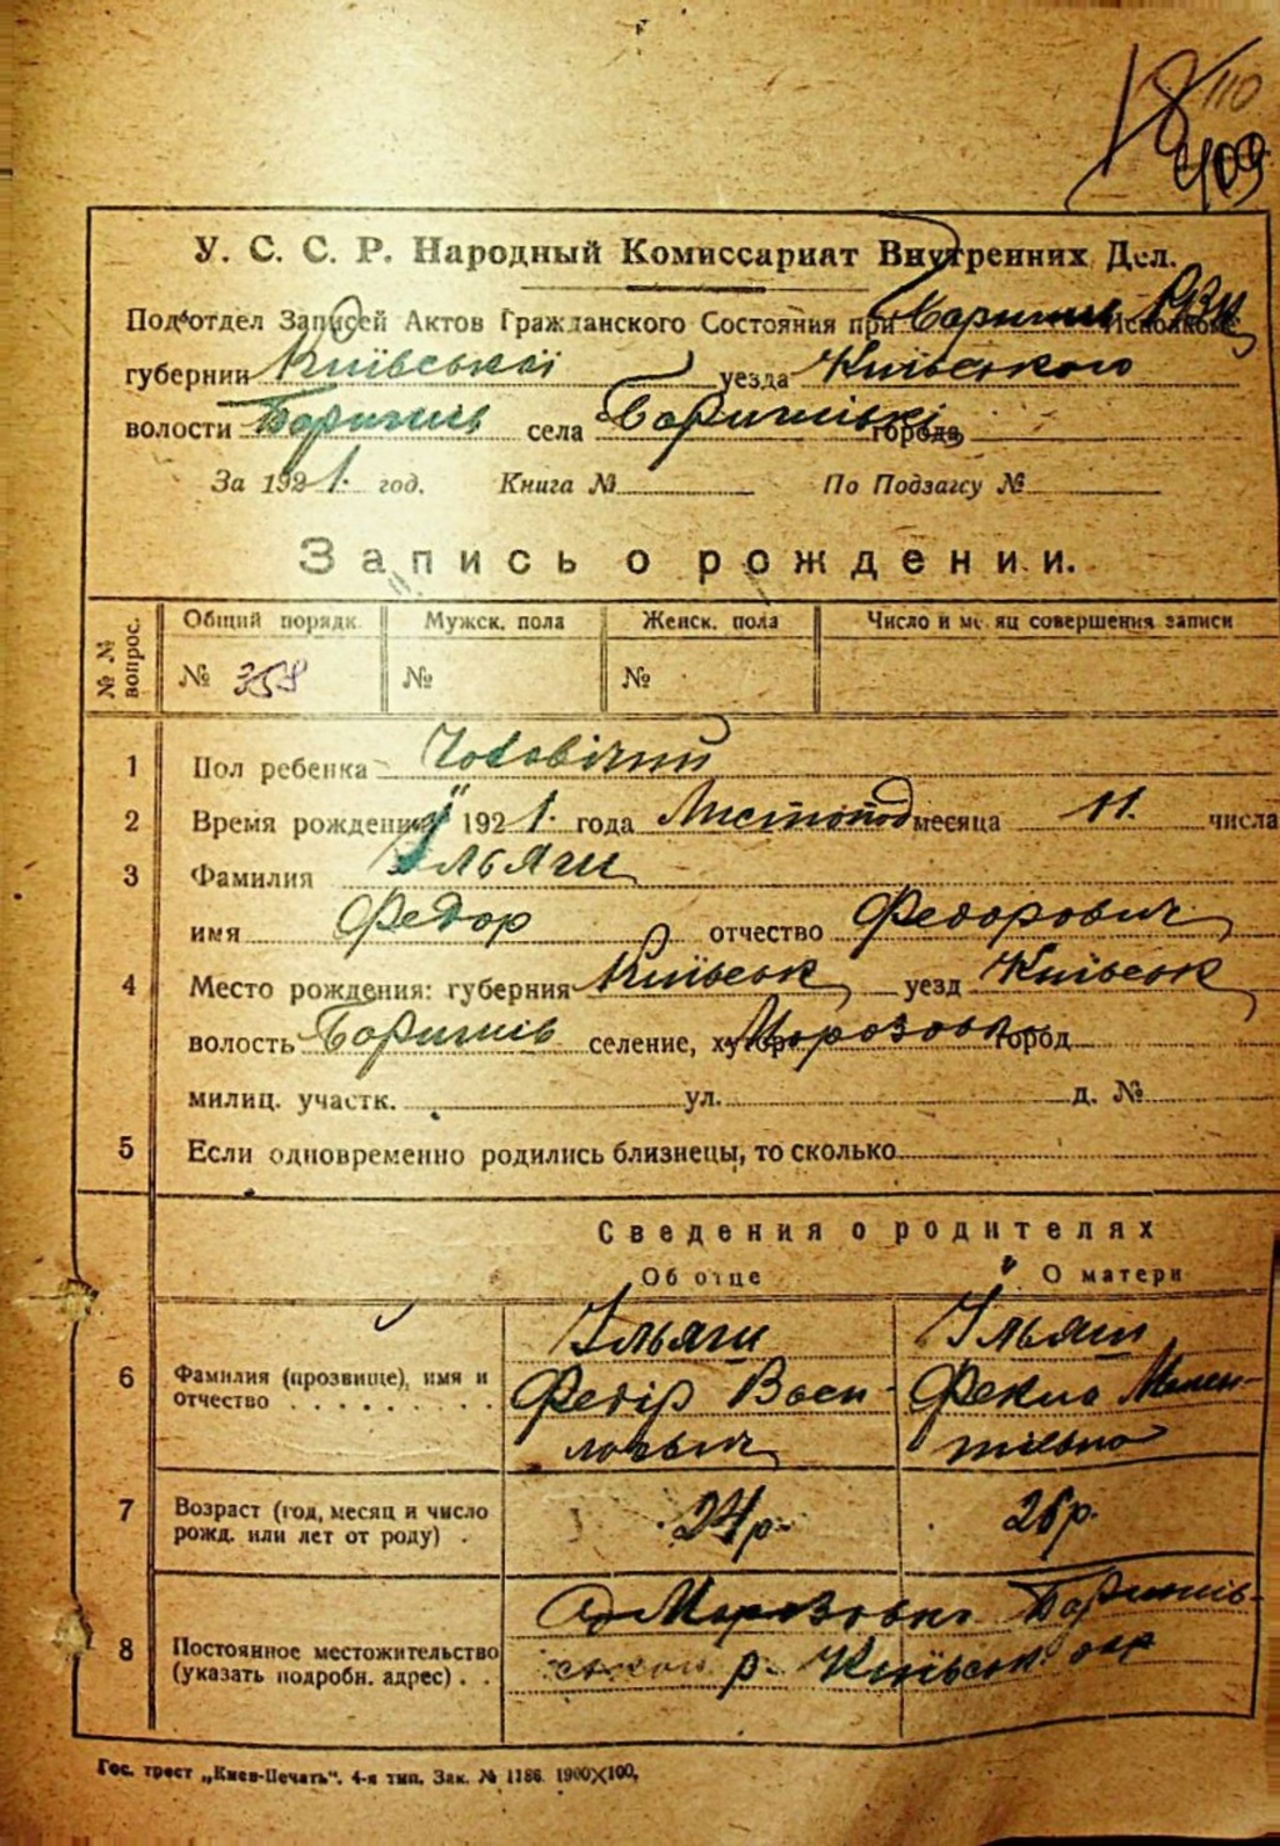 18 110
409
У. С. С. Р. Народный Комиссариат Внутренних Дел.
Подотдел Записей Актов Гражданского Состояния при Баришів РВК Исполкоме
губернии Київської уезда Київського
волости Баришів села Баришівці города
За 1921. год. Книга № По Подзагсу №
Запись о рождении.
№ № вопрос. Общий порядк. Мужск. пола Женск. пола Число и месяц совершения записи
№ 358 № №
1 Пол ребенка Чоловічий
2 Время рождения 1921. года Листопад месяца 11. числа
3 Фамилия Ільяги
имя Федор отчество Федорович
4 Место рождения: губерния Київськ уезд Київськ
волость Баришів селение, хутор Морозовка город
милиц. участк. ул. д. №
5 Если одновременно родились близнецы, то сколько
Сведения о родителях
Об отце О матери
Ільяги Ільяги
6 Фамилия (прозвище), имя и отчество Федір Васи- Фекла
ловыч
7 Возраст (год, месяц и число рожд. или лет от роду) 24 р. 26 р.
8 Постоянное местожительство (указать подробн. адрес) Морозовка Баришів-
ської р. Київськ окр
Гос. трест „Киев-Печать". 4-я тип. Зак. № 1186. 1900X100,